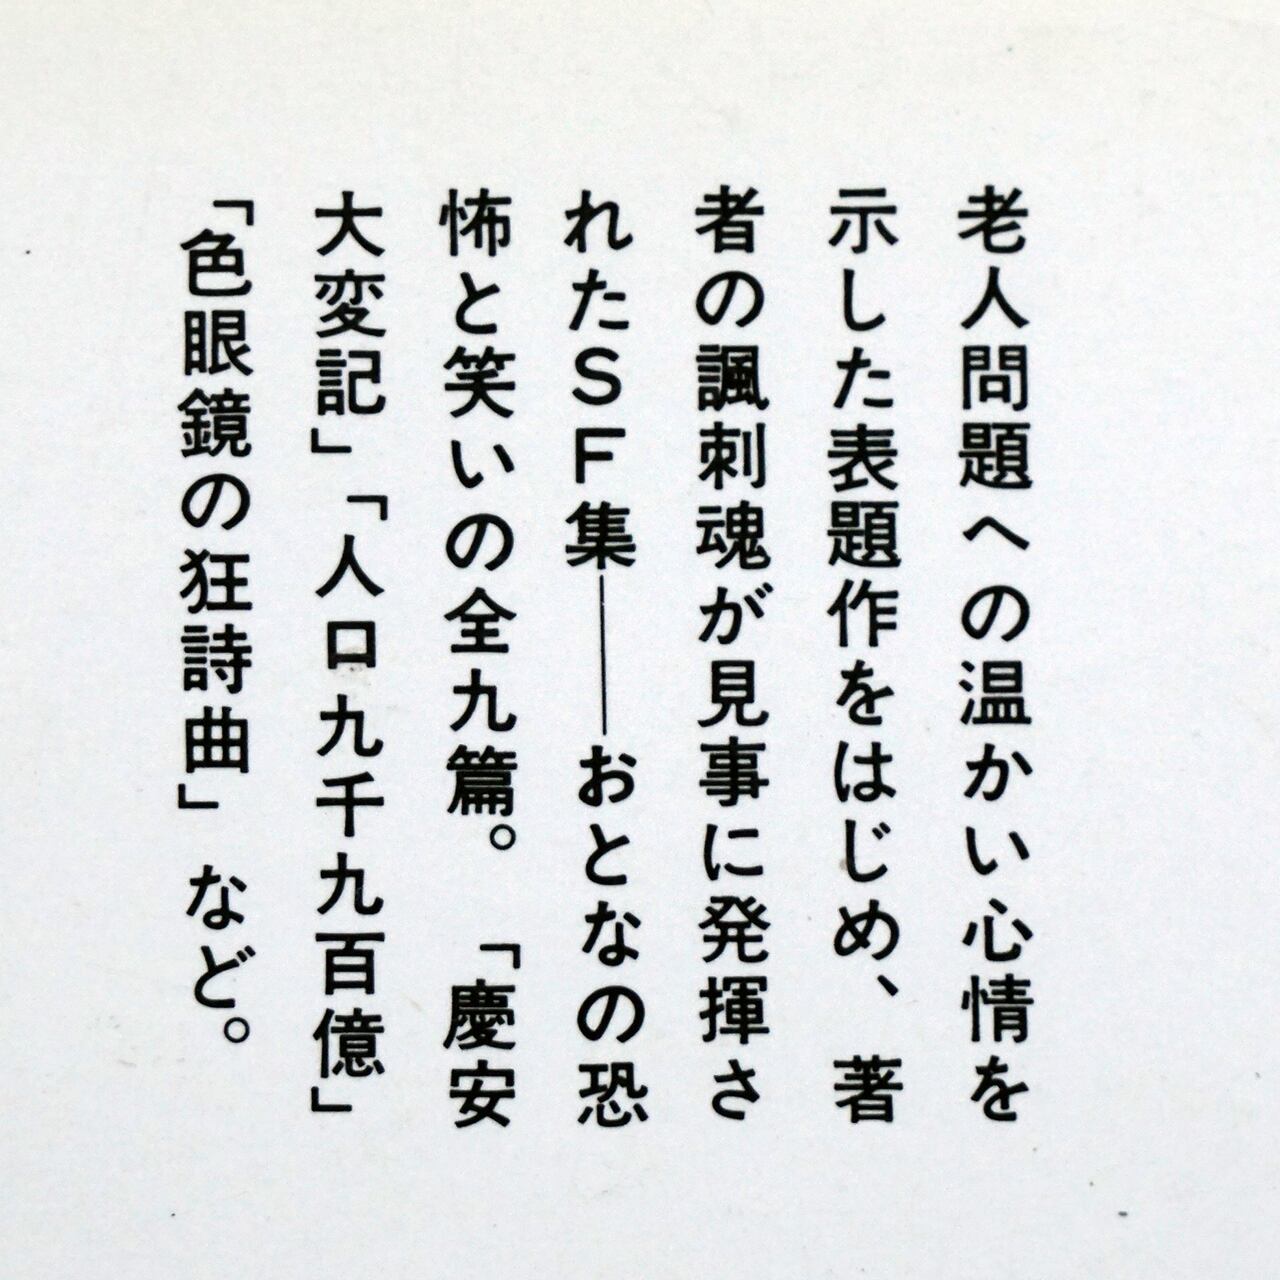 老人問題への温かい心情を
示した表題作をはじめ、著
者の諷刺魂が見事に発揮さ
れたSF集――おとなの恐
怖と笑いの全九篇。「慶安
大変記」「人口九千九百億」
「色眼鏡の狂詩曲」など。